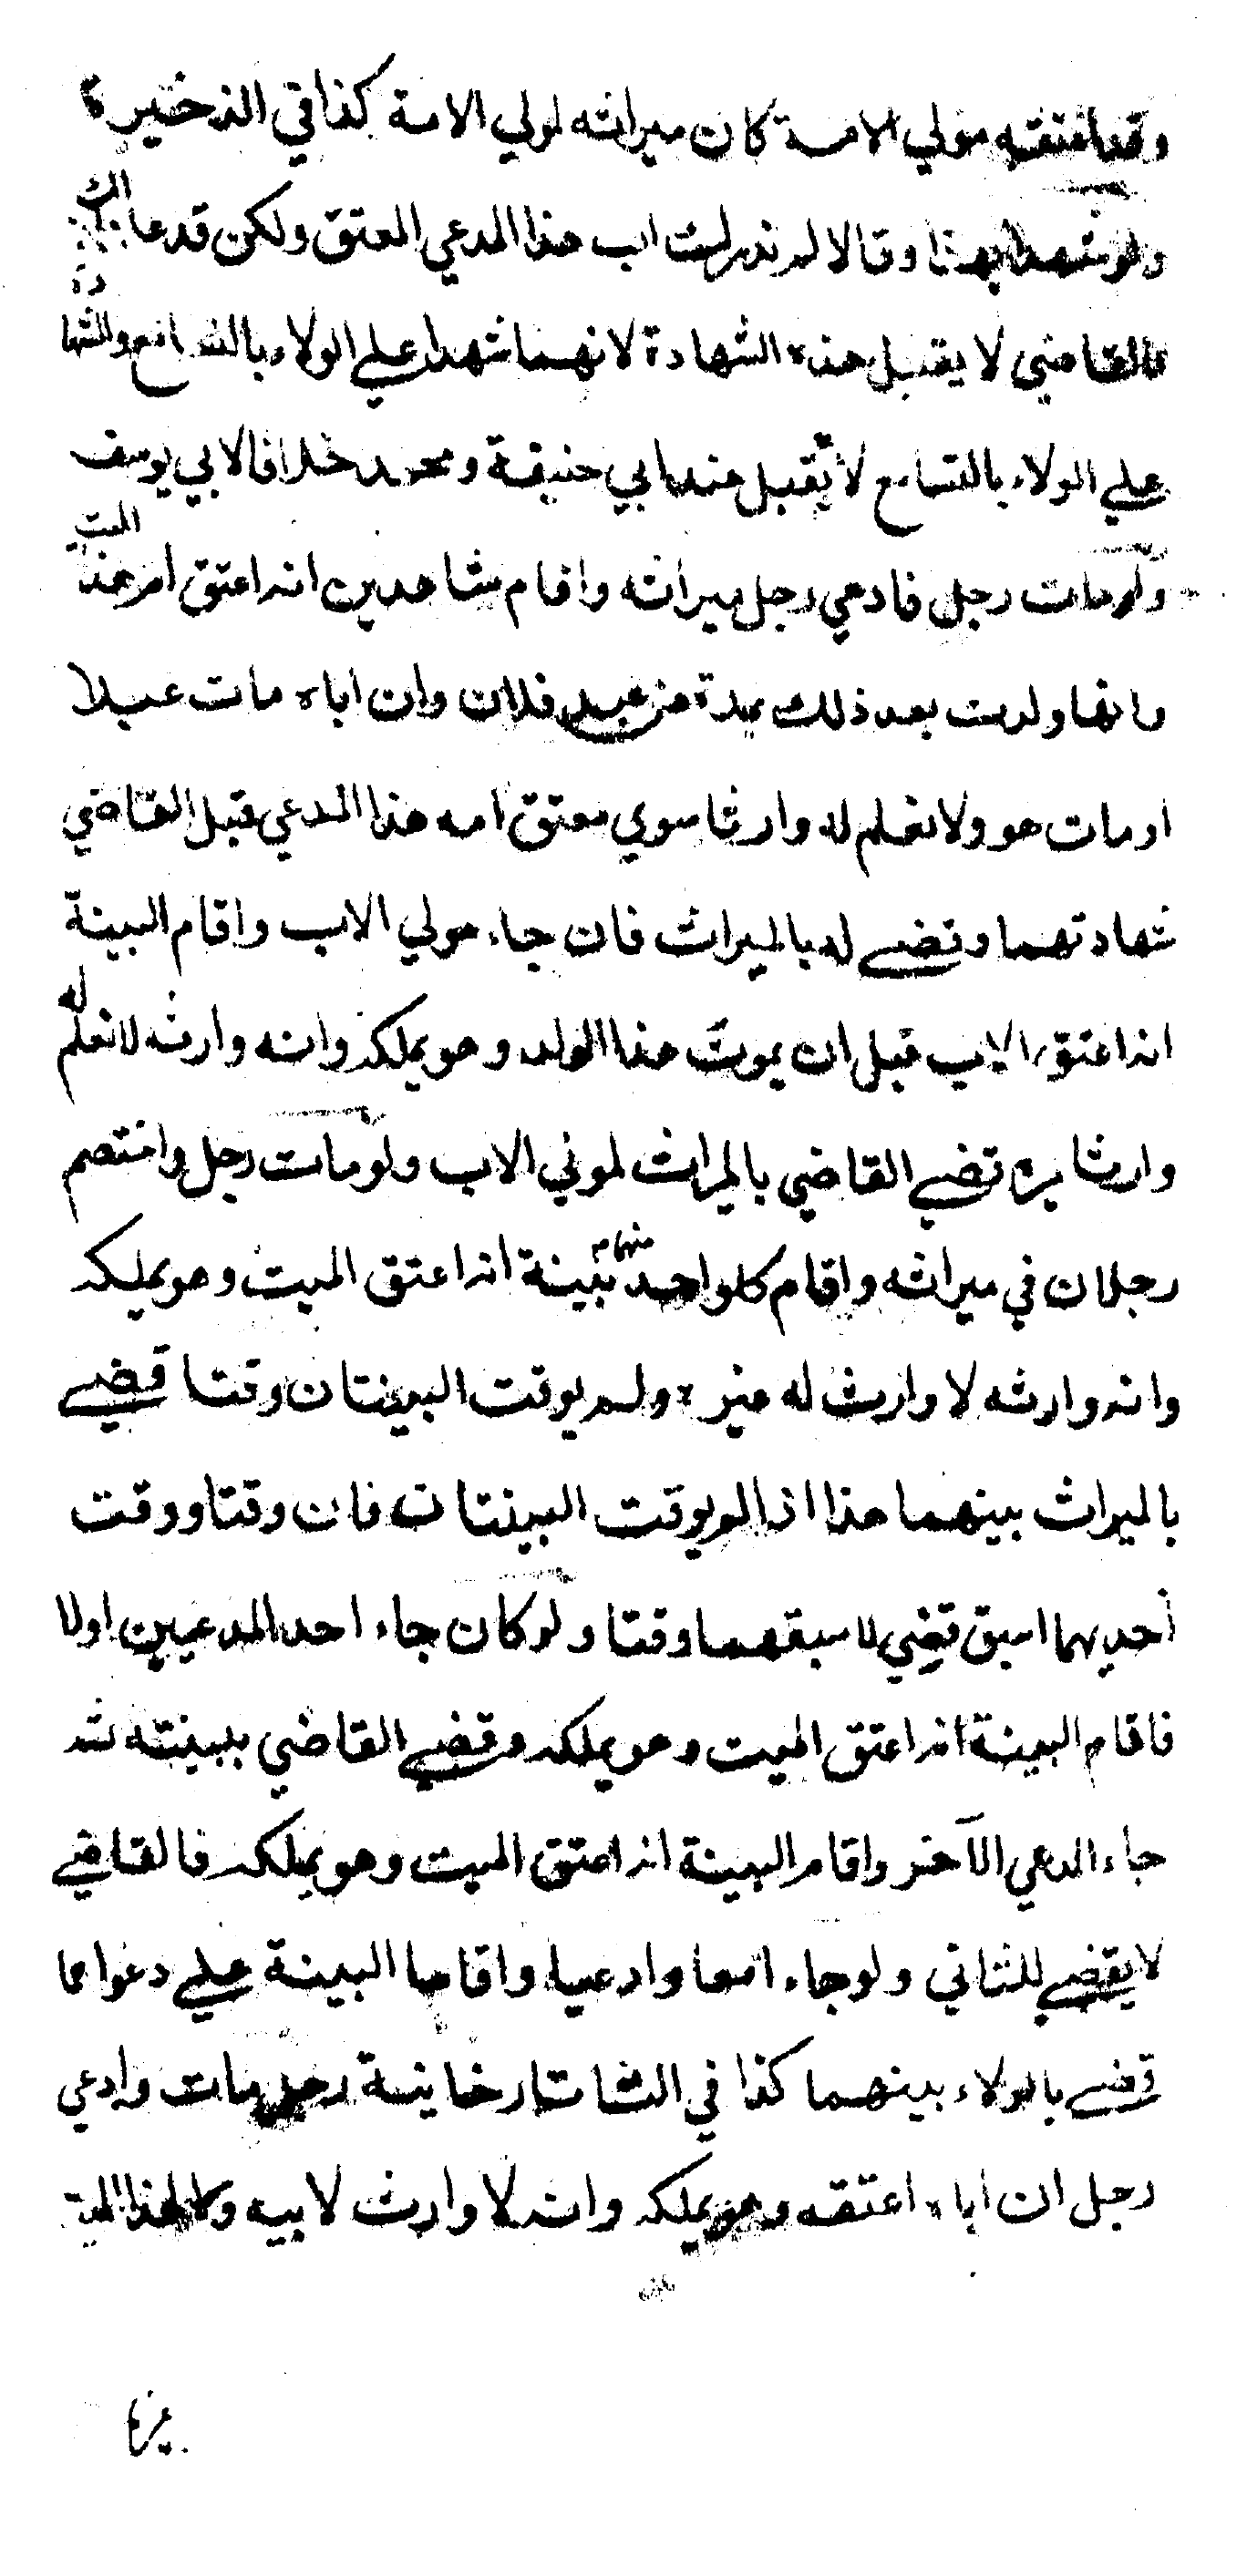 وقد اعتقه مولي الامة كان ميراثه لمولي الامة كذا في الذخيرة
ولو شهدا بهذا وقالا لم ندرك اب هذا المدعي المعتق ولكن قد علمنا ذلك
فالقاضي لا يقبل هذه الشهادة لانهما شهدا علي الولاء بالتسامع والشهادة
علي الولاء بالتسامع لا تقبل عند ابي حنيفة ومحمد خلافا لابي يوسف
ولو مات رجل فادعي رجل ميراثه واقام شاهدين انه اعتق ام هذا الميت
وانها ولدت بعد ذلك بمدة من عبد فلان وان اباه مات عبدا
او مات هو ولا نعلم له وارثا سوي معتق امه هذا المدعي قبل القاضي
شهادتهما وقضي له بالميراث فان جاء مولي الاب واقام البينة
انه اعتق الاب قبل ان يموت هذا الولد وهو يملكه وانه وارثه لا نعلم له
وارثا غيره قضي القاضي بالميراث لمولي الاب ولو مات رجل واختصم
رجلان في ميراثه واقام كل واحد منهما بينة انه اعتق الميت وهو يملكه
وانه وارثه لا وارث له غيره ولم يوقت البينتان وقتا قضي
بالميراث بينهما هذا اذا لم يوقت البينتان فان وقتا ووقت
أحديهما اسبق قضي لاسبقهما وقتا ولو كان جاء احد المدعيين اولا
فاقام البينة انه اعتق الميت وهو يملكه وقضي القاضي ببينته ثم
جاء المدعي الآخر واقام البينة انه اعتق الميت وهو يملكه فالقاضي
لا يقضي للثاني ولو جاء امعا وادعيا واقاما البينة علي دعواهما
قضي بالولاء بينهما كذا في التاتارخانية رجل مات وادعي
رجل ان اباه اعتقه وهو يملكه وانه لا وارث لابيه ولا لهذا الميت